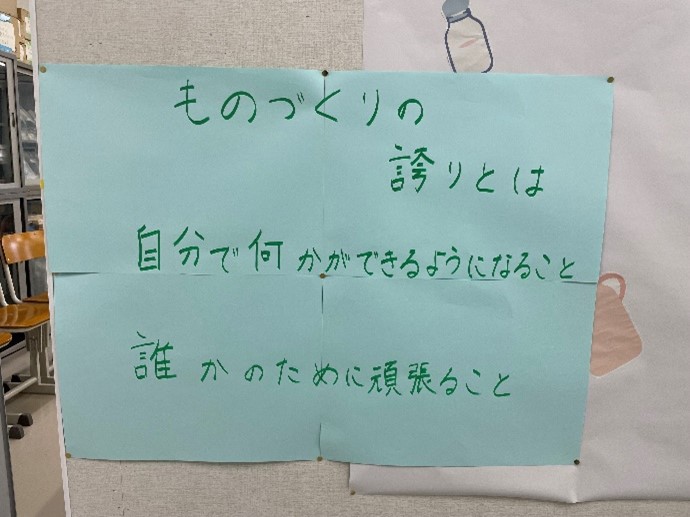 ものづくりの
誇りとは
自分で何かができるようになること
誰かのために頑張ること